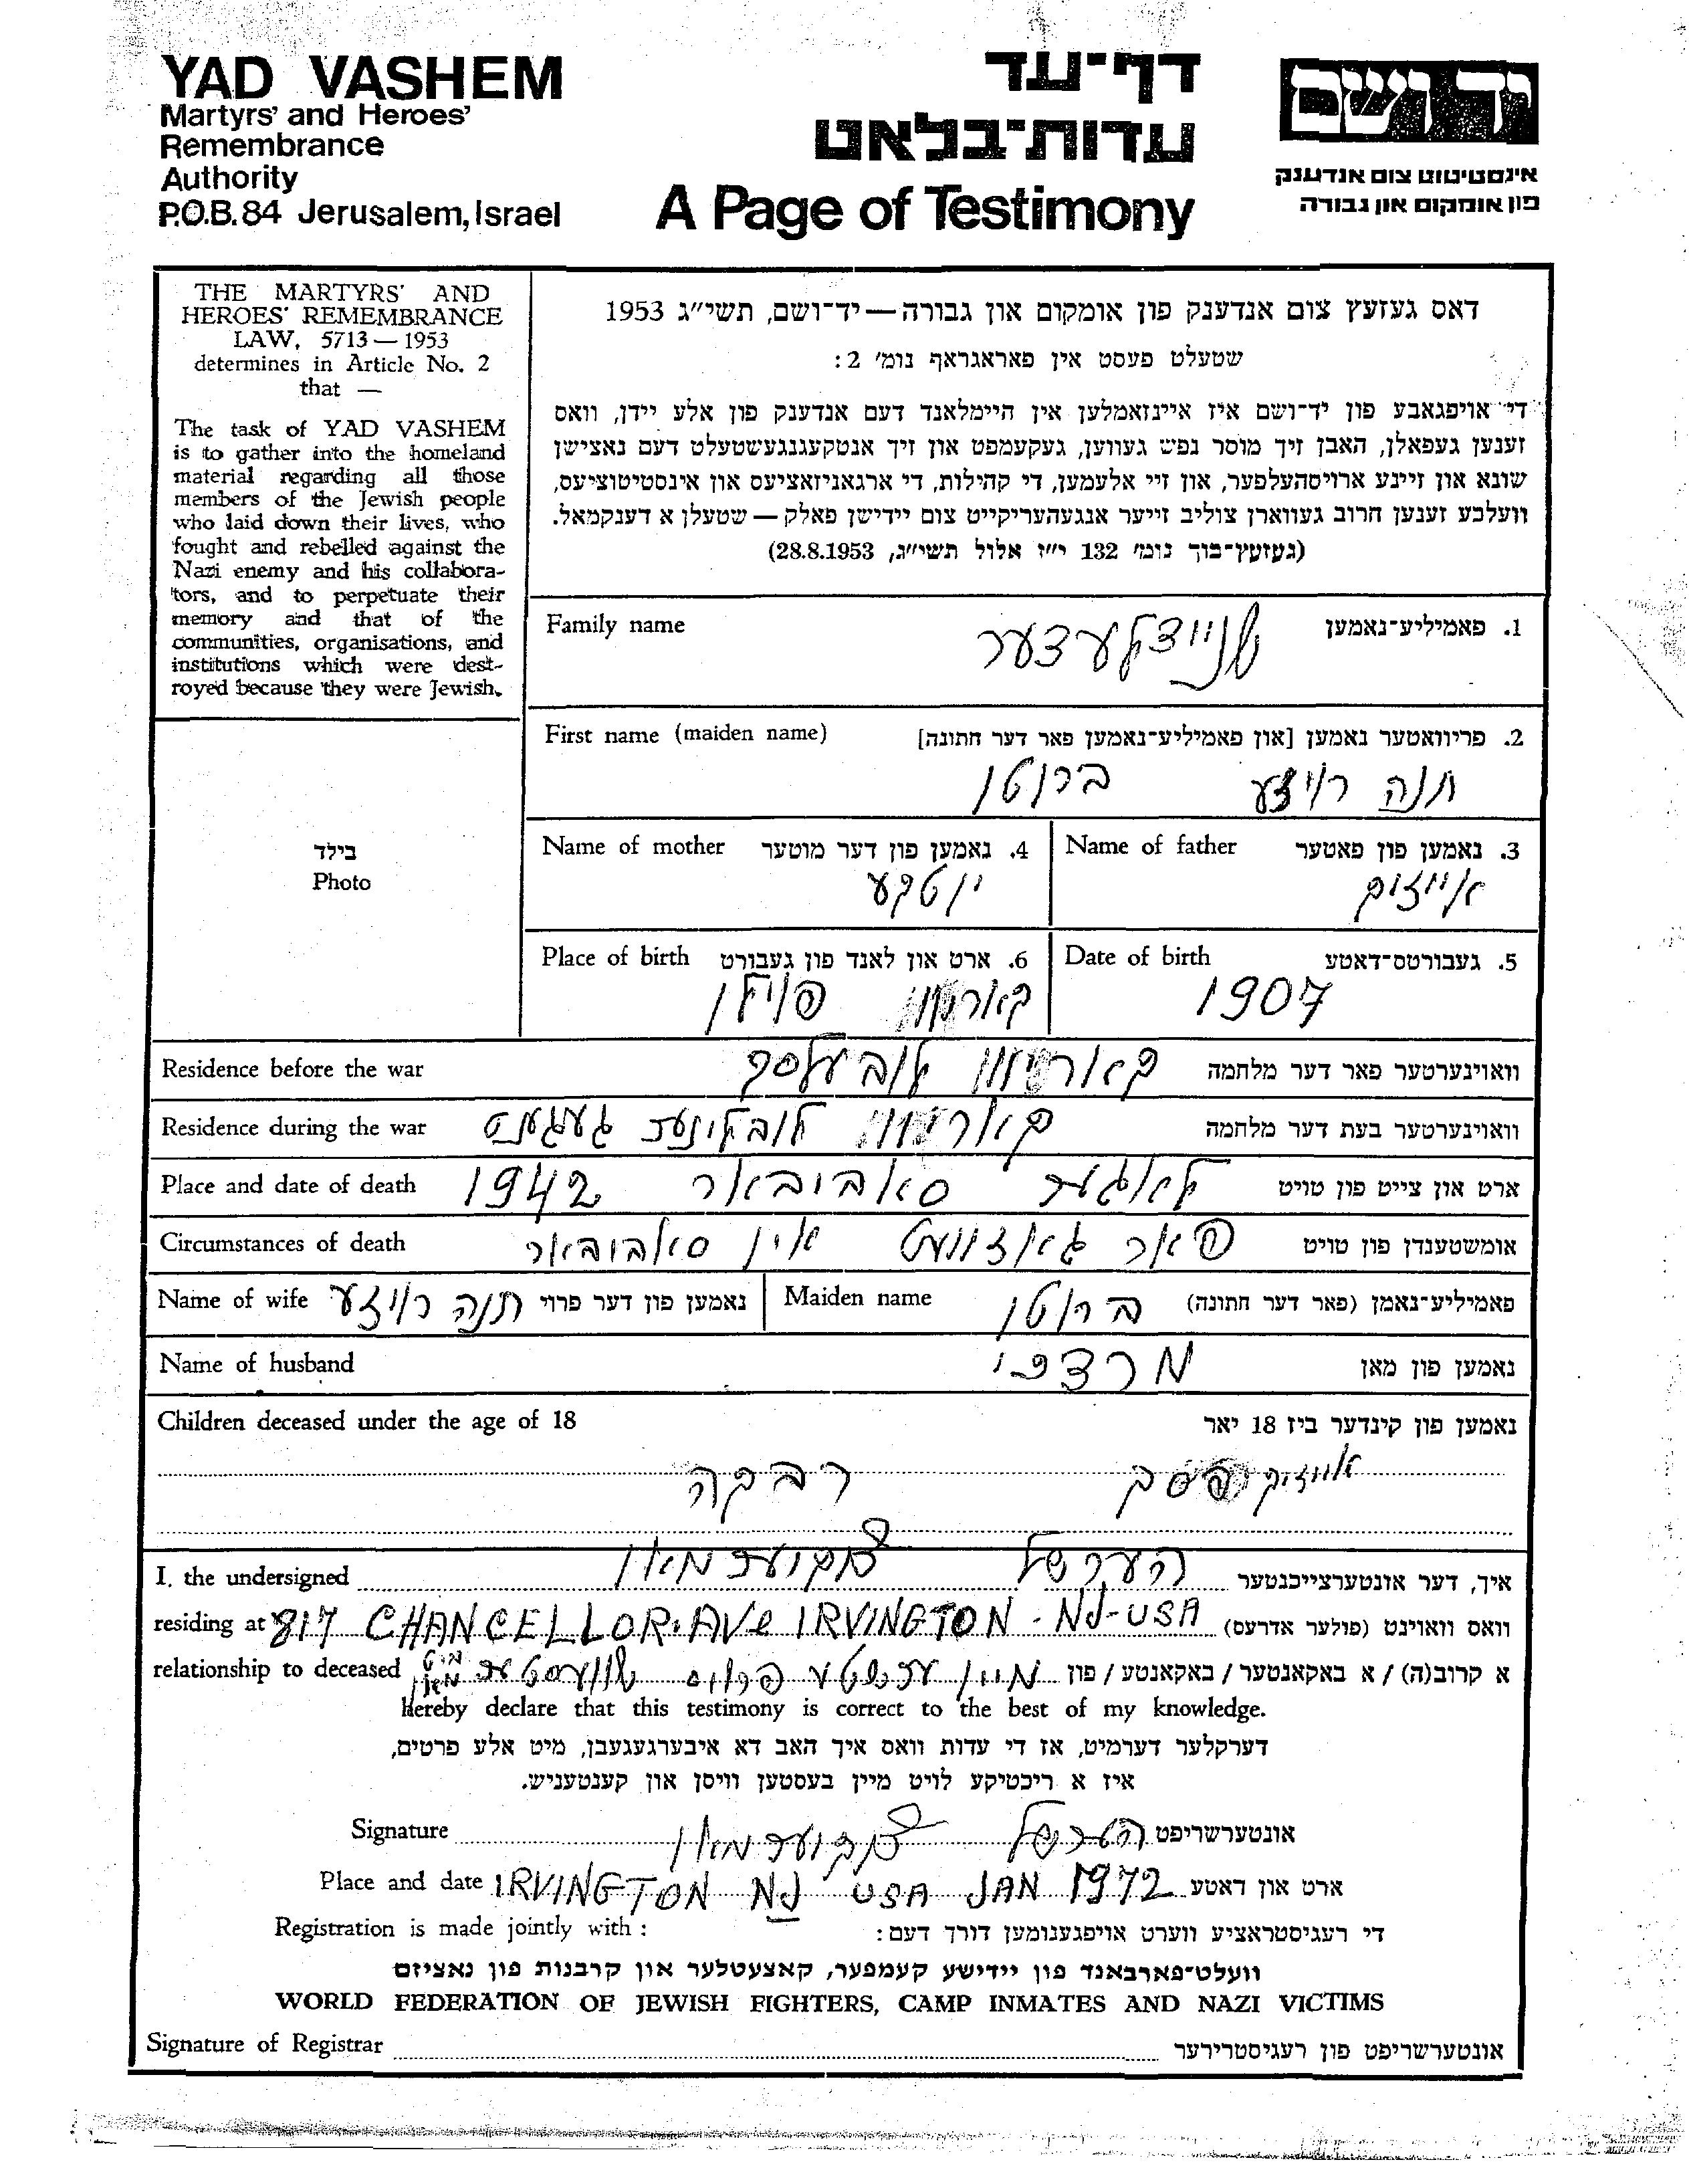 YAD VASHEM
Martyrs' and Heroes'
Remembrance
Authority
P.O.B. 84 Jerusalem, Israel
דף־עד
עדות־בלאט
A Page of Testimony
יד ושם
אינסטיטוט צום אנדענק
פון אומקום און גבורה
THE MARTYRS' AND
HEROES' REMEMBRANCE
LAW, 5713 — 1953
determines in Article No. 2
that —
The task of YAD VASHEM
is to gather into the homeland
material regarding all those
members of the Jewish people
who laid down their lives, who
fought and rebelled against the
Nazi enemy and his collabora-
tors, and to perpetuate their
memory and that of the
communities, organisations, and
institutions which were dest-
royed because they were Jewish.
דאס געזעץ צום אנדענק פון אומקום און גבורה — יד־ושם, תשי״ג 1953
שטעלט פעסט אין פאראגראף נומ׳ 2:
די אויפגאבע פון יד־ושם איז איינזאמלען אין היימלאנד דעם אנדענק פון אלע יידן, וואס
זענען געפאלן, האבן זיך מוסר נפש געווען, געקעמפט און זיך אנטקעגנגעשטעלט דעם נאצישן
שונא און זיינע ארויסהעלפער, און זיי אלעמען, די קהילות, די ארגאניזאציעס און אינסטיטוציעס,
וועלכע זענען חרוב געווארן צוליב זייער אנגעהעריקייט צום יידישן פאלק — שטעלן א דענקמאל.
(געזעץ־בוך נומ׳ 132 י״ז אלול תשי״ג, 28.8.1953)
Family name שנייצלעצער 1. פאמיליע־נאמען
First name (maiden name) 2. פריוואטער נאמען [און פאמיליע־נאמען פאר דער חתונה]
חנה רויזע ברוטן
Name of mother 4. נאמען פון דער מוטער Name of father 3. נאמען פון פאטער
יוטקע אייזיק
Place of birth 6. ארט און לאנד פון געבורט Date of birth 5. געבורטס־דאטע
פוילן 1907
בילד
Photo
Residence before the war וואוינערטער פאר דער מלחמה
Residence during the war לובלינער געגענט וואוינערטער בעת דער מלחמה
Place and date of death לאגער סאביבאר 1942 ארט און צייט פון טויט
Circumstances of death פאר גאזוועט אין סאביבאר אומשטענדן פון טויט
Name of wife חנה רויזע נאמען פון דער פרוי Maiden name ברוטן פאמיליע־נאמן (פאר דער חתונה)
Name of husband מרדכי נאמען פון מאן
Children deceased under the age of 18 נאמען פון קינדער ביז 18 יאר
אייזיק רבקה
I, the undersigned הערשל צוקערמאן איך, דער אונטערצייכנטער
residing at 817 CHANCELLOR. AVe IRVINGTON - NJ-USA וואס וואוינט (פולער אדרעס)
relationship to deceased מיין ערשטע פרויס שוועסטער א קרוב(ה) / א באקאנטער / באקאנטע / פון
Hereby declare that this testimony is correct to the best of my knowledge.
דערקלער דערמיט, אז די עדות וואס איך האב דא איבערגעגעבן, מיט אלע פרטים,
איז א ריכטיקע לויט מיין בעסטען וויסן און קענטעניש.
Signature הערשל צוקערמאן אונטערשריפט
Place and date IRVINGTON NJ USA JAN 1972 ארט און דאטע
Registration is made jointly with : די רעגיסטראציע ווערט אויפגענומען דורך דעם:
וועלט־פארבאנד פון יידישע קעמפער, קאצעטלער און קרבנות פון נאציזם
WORLD FEDERATION OF JEWISH FIGHTERS, CAMP INMATES AND NAZI VICTIMS
Signature of Registrar אונטערשריפט פון רעגיסטרירער